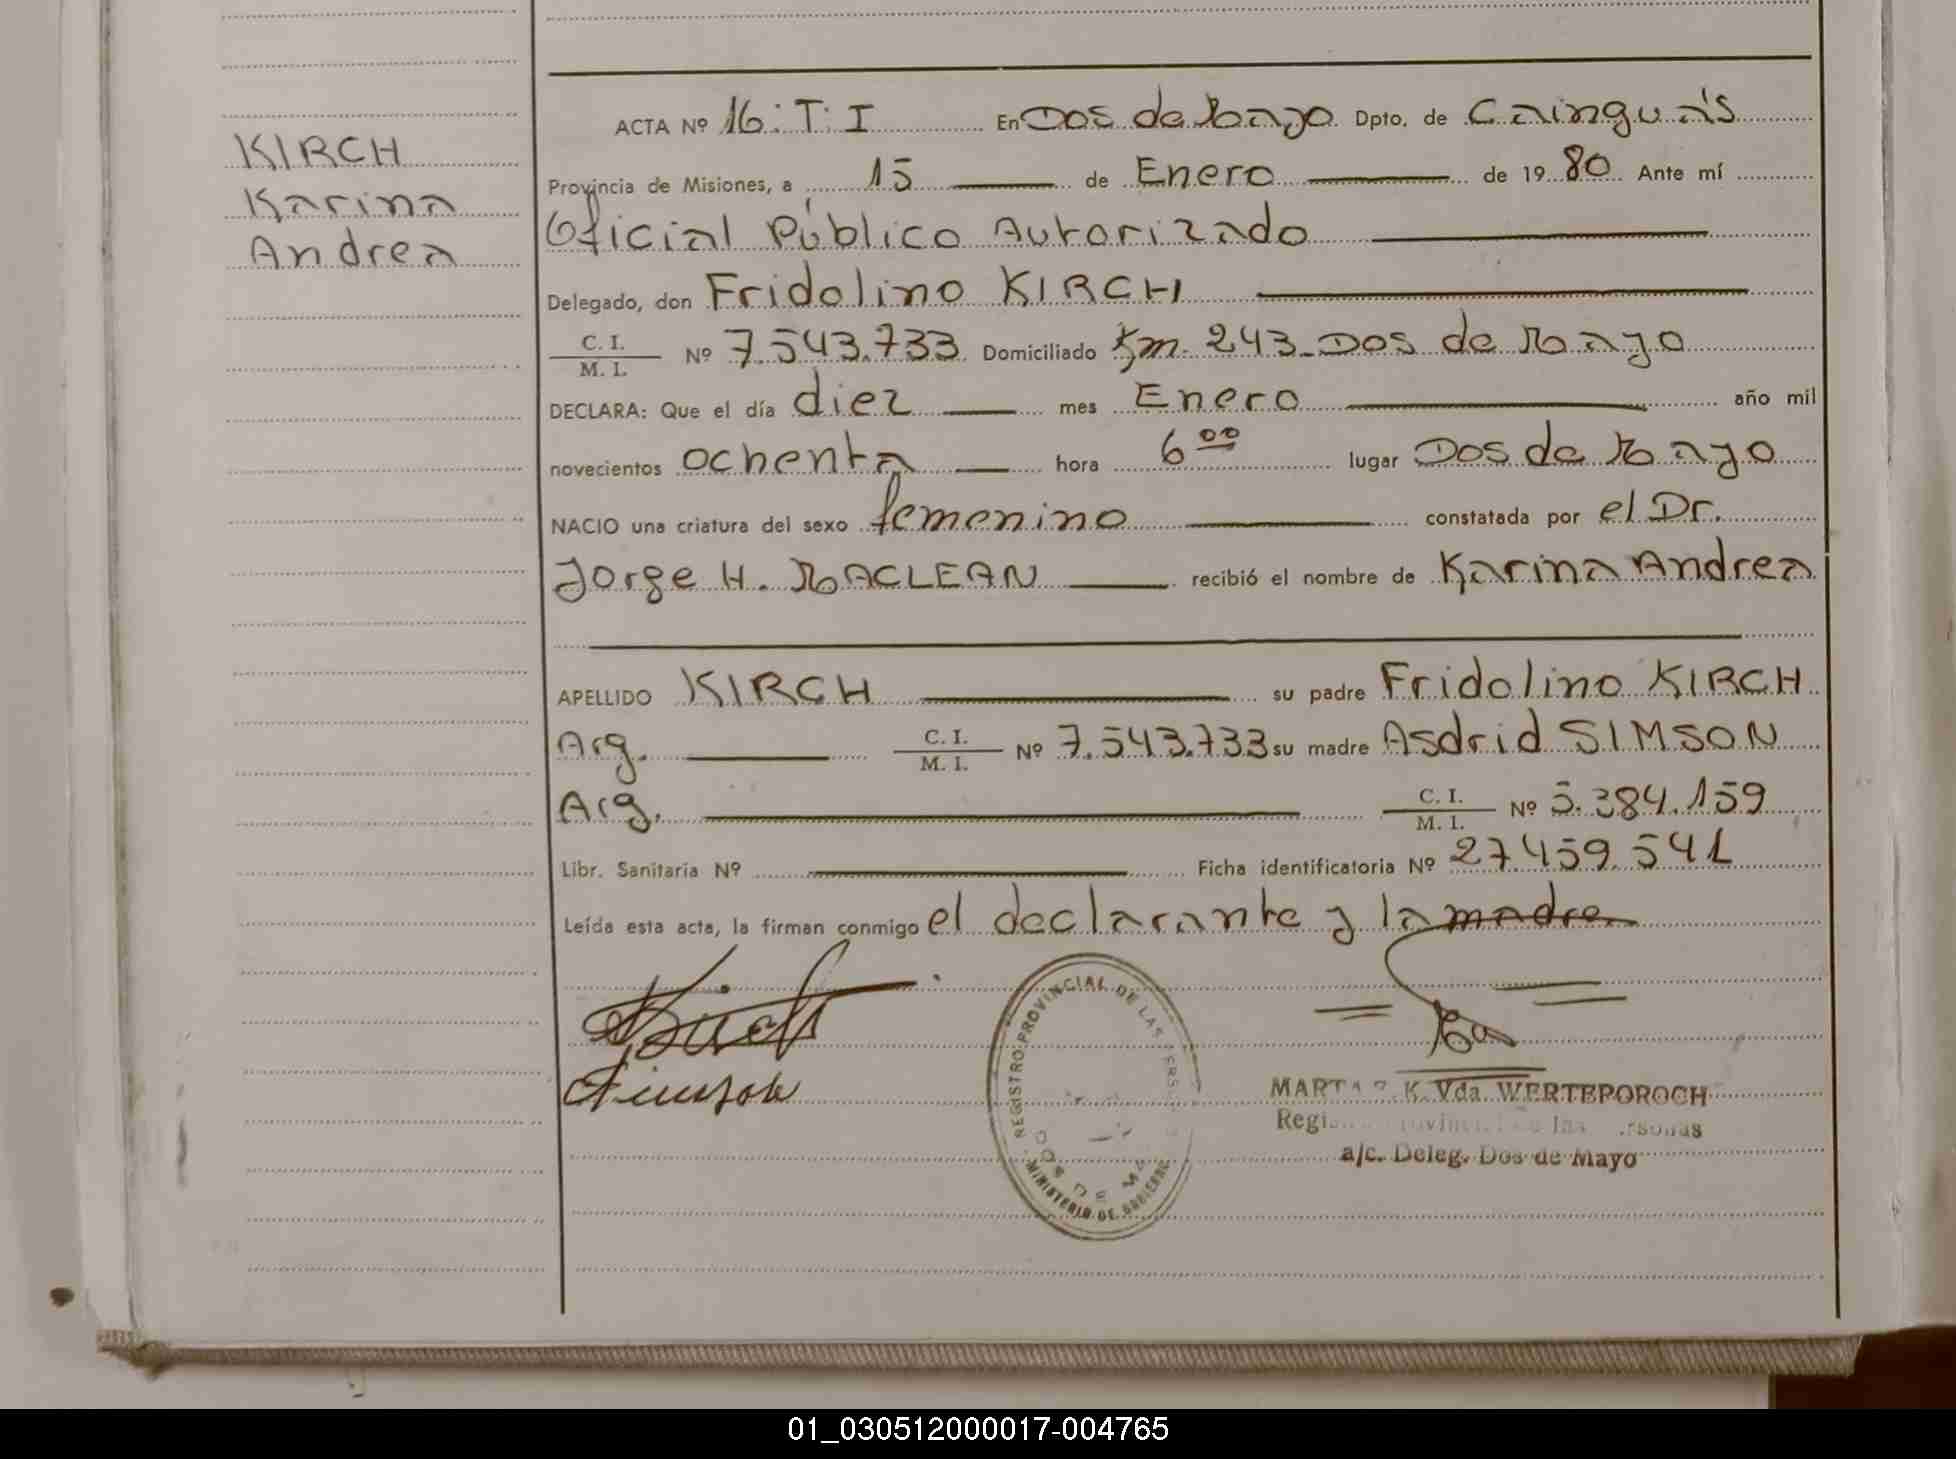 KIRCH
Karina
Andrea
ACTA Nº 16: T: I En Dos de Mayo Dpto. de Cainguás
Provincia de Misiones, a 15 de Enero de 1980 Ante mí
Oficial Público Autorizado
Delegado, don Fridolino KIRCH
C. I.
M. I. Nº 7.543.733 Domiciliado Km. 243-Dos de Mayo
DECLARA: Que el día diez mes Enero año mil
novecientos ochenta hora 6 00 lugar Dos de Mayo
NACIO una criatura del sexo femenino constatada por el Dr.
Jorge H. MACLEAN recibió el nombre de Karina Andrea
APELLIDO KIRCH su padre Fridolino KIRCH
Arg. C. I.
M. I. Nº 7.543.733 su madre Asdrid SIMSON
Arg. C. I.
M. I. Nº 5.384.159
Libr. Sanitaria Nº Ficha identificatoria Nº 27.459.541
Leída esta acta, la firman conmigo el declarante y la madre
Kirch
Simson
REGISTRO PROVINCIAL DE LAS
DOS DE
MINISTERIO DE GOBIERNO
K. Vda. WERTEPOROCH
a/c. Deleg. Dos de Mayo
01_030512000017-004765